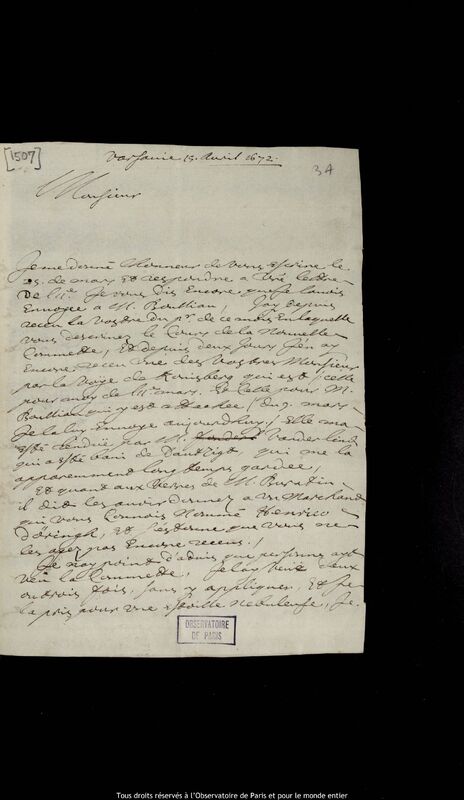 [1507]
Varsavie 15. Avril 1672.
34
Monsieur
Je me donné l'honneur de vous escrire le
25. de mars et respondre a vre lettre
de Je vous dis encore que je l'avois
envoyée a M. Boulliau, J'ay depuis
receu la vostre du pr. de ce mois en laquelle
vous descrivez le Cours de la Nouvelle
Commette, Et depuis deux jours j'en ay
encore receu une des vostres Monsieur
par la voye de Konisberg qui est celle
pour moy de mars. Et celle pour M.
Boulliau qui y est attachee du 9. mars
Je la luy envoye aujourdhuy, Elle ma
esté rendüe par M. Vander
qui a esté de Dantzigt, qui me la
apparemment long temps gardée,
Et quant aux verres de M. Buratin
il dit les avoir donnez a un Marchand
qui vous Connois Nommé Henrico
et s'estonne que vous ne
les ayez pas encore receus.
Je nay point d'advis que personne ayt
veu la Commette. Je lay veüe deux
ou trois fois sans y appliquer, Et Je
la pris pour une estoille Nebuleuse, Je
OBSERVATOIRE
DE PARIS
Tous droits réservés à l'Observatoire de Paris et pour le monde entier